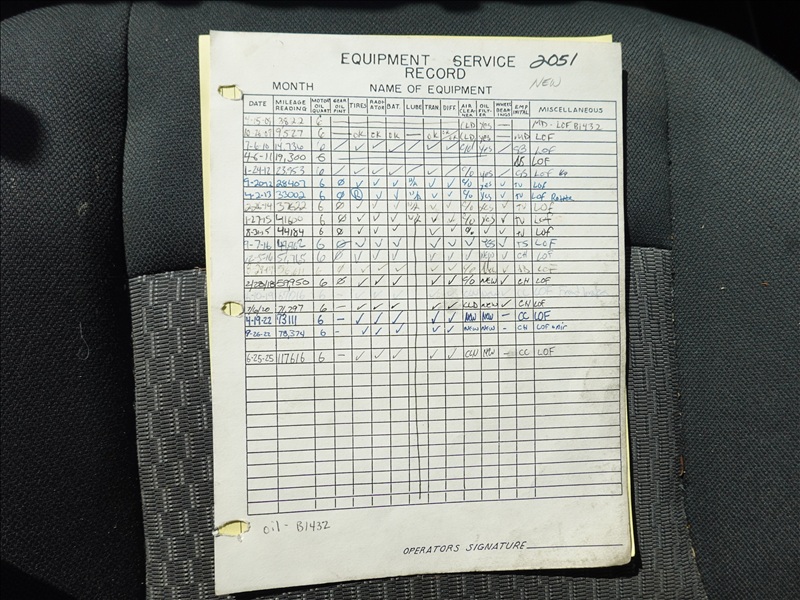 EQUIPMENT SERVICE RECORD 2051
MONTH NAME OF EQUIPMENT NEW
DATE MILEAGE READING MOTOR OIL QUART GEAR OIL PINT TIRES RADIATOR BAT. LUBE TRAN DIFF AIR CLEANER OIL FILTER WHEEL BEARINGS EMP INITIAL MISCELLANEOUS
3822 6 CLD yes — MD - LOF B1432
9527 6 — OK OK OK — OK OK CLD yes — MD LOF
7-6-10 14,736 6 ✓ ✓ ✓ ✓ ✓ ✓ ✓ yes ✓ LOF
4-6-11 19,300 6 LOF
1-24-12 23953 6 ✓ ✓ ✓ ✓ ✓ ✓ ✓ % yes ✓ LOF
28407 6 Ø ✓ ✓ ✓ N/A ✓ ✓ % yes ✓ TV LOF
4-2-13 33002 6 Ø R ✓ ✓ N/A ✓ ✓ % yes ✓ TV LOF Rotate
37622 6 Ø ✓ ✓ ✓ N/A ✓ ✓ % yes ✓ TV LOF
1-27-15 41600 6 Ø ✓ ✓ ✓ N/A ✓ ✓ % yes ✓ TV LOF
44184 6 Ø ✓ ✓ ✓ ✓ ✓ % ✓ ✓ TV LOF
9-7-16 6 Ø ✓ ✓ ✓ ✓ ✓ ✓ YES ✓ TS LOF
6 Ø ✓ ✓ ✓ ✓ ✓ ✓ NEW ✓ CH LOF
LOF
2/28/18 57950 6 Ø ✓ ✓ ✓ ✓ ✓ % NEW ✓ CH LOF
7/6/20 71,297 6 - ✓ ✓ ✓ ✓ ✓ CLD NEW ✓ CH LOF
4-19-22 73111 6 - ✓ ✓ ✓ ✓ ✓ NEW NEW — CC LOF
9-26-22 78,374 6 - ✓ ✓ ✓ ✓ ✓ NEW NEW - CH LOF + Air
6-25-25 117616 6 — ✓ ✓ ✓ ✓ ✓ CLN NEW — CC LOF
oil - B1432
OPERATORS SIGNATURE